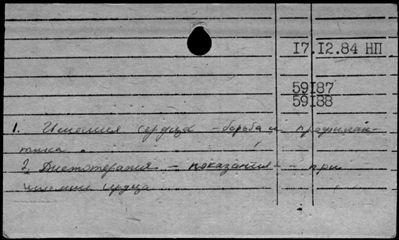 17.12.84 НП
59187
59188
1. Ишемия сердца - борьба и профилак-
тика.
2. Диетотерапия - показания - при
ишемии сердца